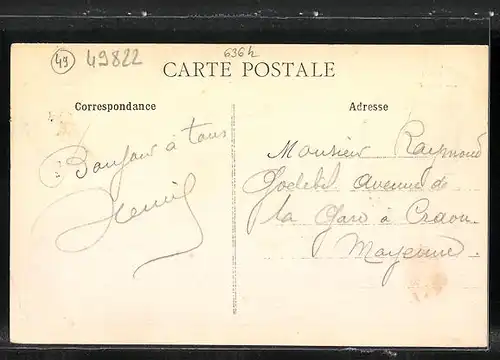 49 49822
6364
CARTE POSTALE
Correspondance
Adresse
Bonjour à tous
Monsieur Raymond
Godebit Avenue de
la Gare à Craon
Mayenne.